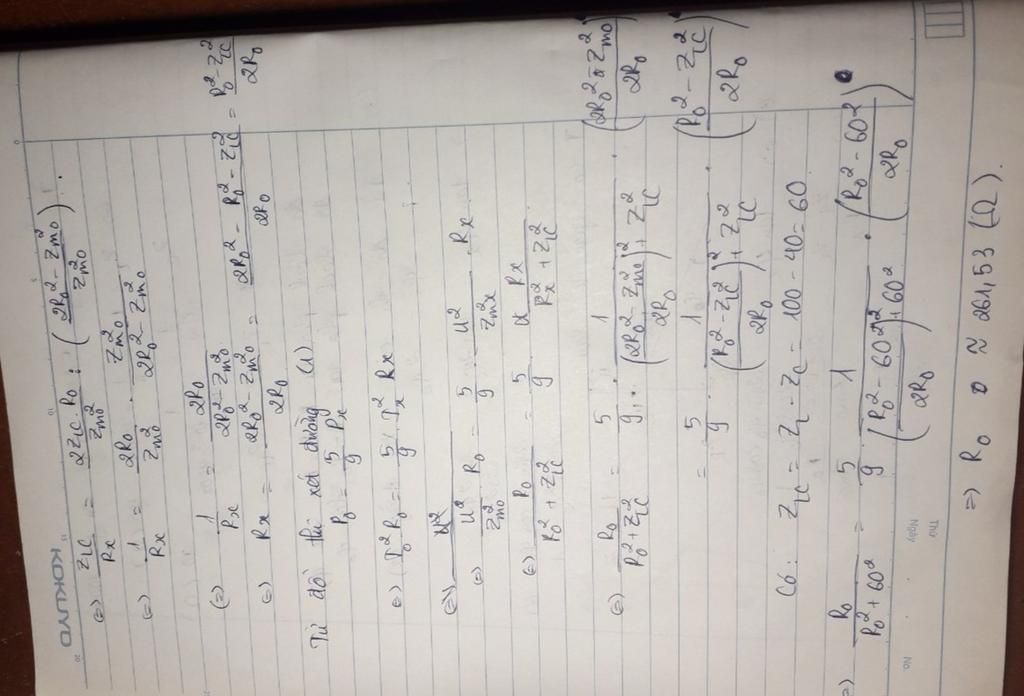 KOKUYO
(=) Z_LC / R_x = 2Z_LC . R_0 / Z_m0^2 : ( (2R_0^2 - Z_m0^2) / Z_m0^2 ) .
(=) 1 / R_x = 2R_0 / Z_m0^2 . Z_m0^2 / (2R_0^2 - Z_m0^2)
(=) 1 / R_x = 2R_0 / (2R_0^2 - Z_m0^2)
(=) R_x = (2R_0^2 - Z_m0^2) / 2R_0 = (2R_0^2 - R_0^2 - Z_LC^2) / 2R_0 = (R_0^2 - Z_LC^2) / 2R_0
Từ đồ thị xét đường (1)
P_0 = 5/9 . P_x
(=) I_0^2 R_0 = 5/9 . I_x^2 R_x
(=) U^2 / Z_m0^2 . R_0 = 5/9 . U^2 / Z_mx^2 . R_x
(=) R_0 / (R_0^2 + Z_LC^2) = 5/9 . R_x / (R_x^2 + Z_LC^2)
(=) R_0 / (R_0^2 + Z_LC^2) = 5/9 . 1 / ( ( (2R_0^2 - Z_m0^2) / 2R_0 )^2 + Z_LC^2 ) . ( (2R_0^2 - Z_m0^2) / 2R_0 )
= 5/9 . 1 / ( ( (R_0^2 - Z_LC^2) / 2R_0 )^2 + Z_LC^2 ) . ( (R_0^2 - Z_LC^2) / 2R_0 )
Có : Z_LC = Z_L - Z_C = 100 - 40 = 60
=) R_0 / (R_0^2 + 60^2) = 5/9 . 1 / ( ( (R_0^2 - 60^2) / 2R_0 )^2 + 60^2 ) . ( (R_0^2 - 60^2) / 2R_0 )
Thứ
Ngày
No.
=) R_0 ≈ 261,53 (Ω).